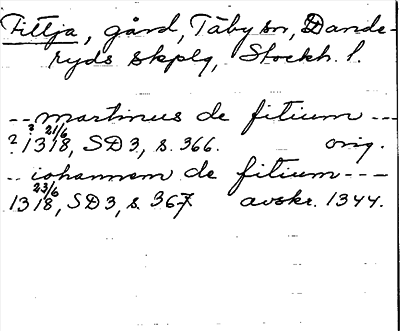 Fittja, gård, Täby sn, Dande-
ryds skplg, Stockh. l.
-- martinus de fitium ---
? 21/6
? 1318, SD 3, s. 366. orig.
-- iohannem de fitium ---
23/6
1318, SD 3, s. 367 avskr. 1344.